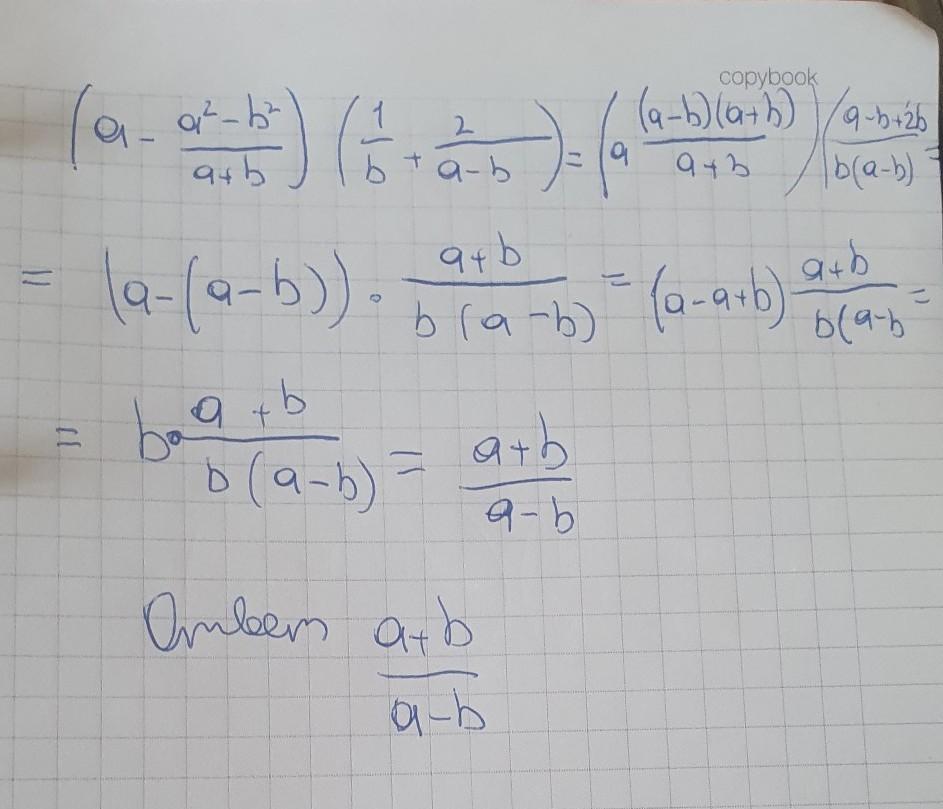 copybook
(a - \frac{a² - b²}{a + b}) (\frac{1}{b} + \frac{2}{a - b}) = (a \frac{(a - b)(a + b)}{a + b}) (\frac{a - b + 2b}{b(a - b)} =
= (a - (a - b)) · \frac{a + b}{b (a - b)} = (a - a + b) \frac{a + b}{b(a - b} =
= b · \frac{a + b}{b (a - b)} = \frac{a + b}{a - b}
Ответ \frac{a + b}{a - b}